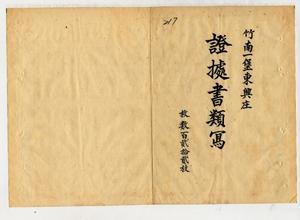 竹南一堡東興庄
證據書類寫
枚數百貳拾貳枚
217